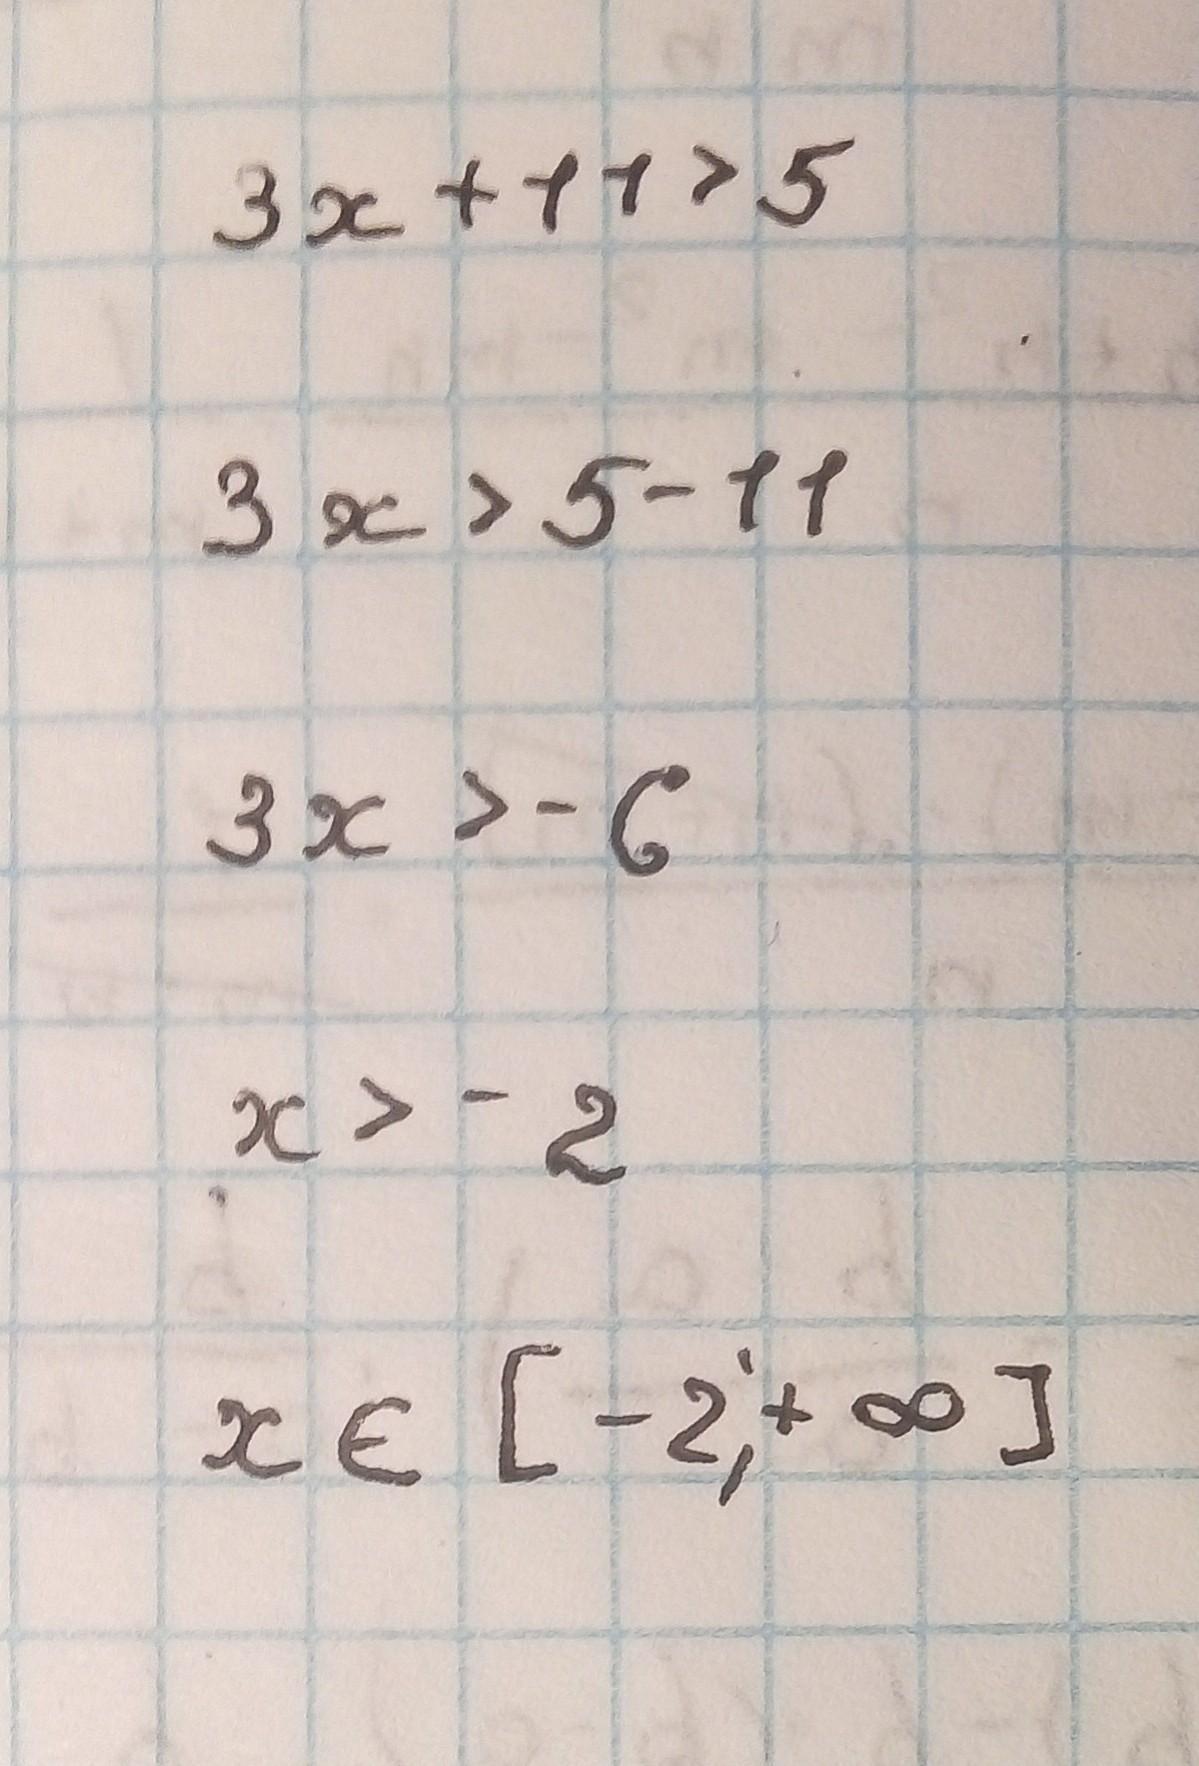 3x + 11 > 5
3x > 5 - 11
3x > - 6
x > - 2
x ∈ [ - 2; + ∞ ]